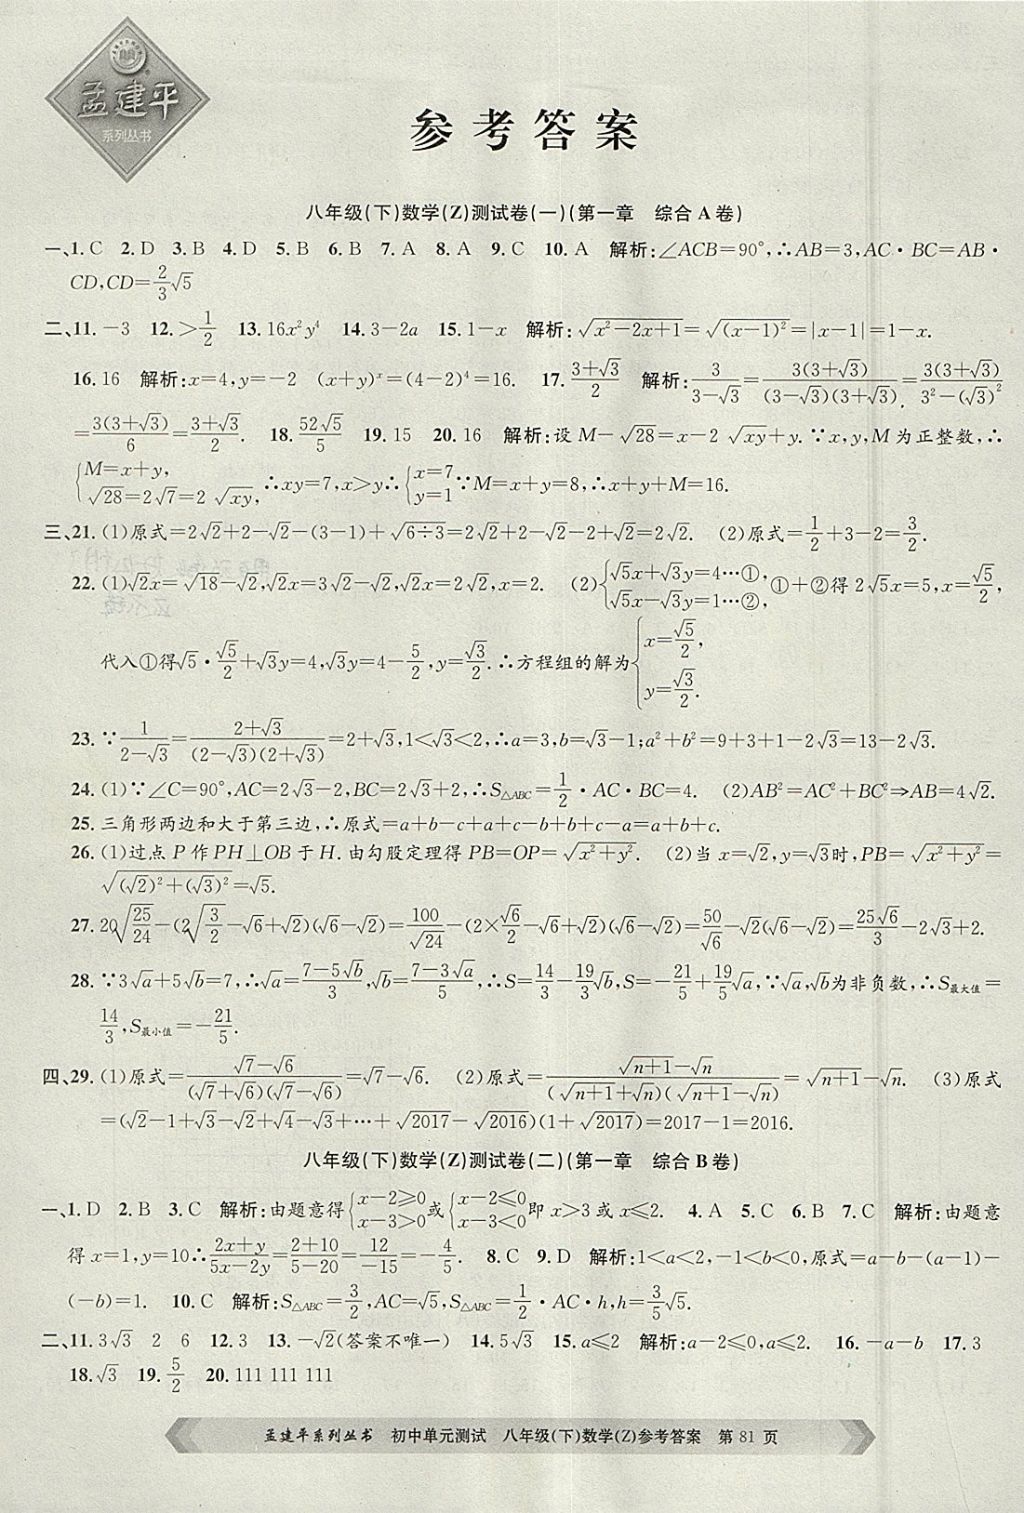 孟建平
系列丛书
参考答案
八年级(下)数学(Z)测试卷(一)(第一章 综合A卷)
一、1. C 2. D 3. B 4. D 5. B 6. B 7. A 8. A 9. C 10. A 解析:∠ACB=90°,∴AB=3,AC·BC=AB·
CD,CD=2/3√5
二、11. −3 12. >1/2 13. 16x²y⁴ 14. 3−2a 15. 1−x 解析:√(x²−2x+1)=√((x−1)²)=|x−1|=1−x.
16. 16 解析:x=4,y=−2 (x+y)ˣ=(4−2)⁴=16. 17. (3+√3)/2 解析:3/(3−√3)=3(3+√3)/((3−√3)(3+√3))=3(3+√3)/(3²−(√3)²)
=3(3+√3)/6=(3+√3)/2. 18. 52√5/5 19. 15 20. 16 解析:设M−√28=x−2√xy+y.∵x,y,M为正整数,∴
{M=x+y, √28=2√7=2√xy,∴xy=7,x>y∴{x=7 y=1∵M=x+y=8,∴x+y+M=16.
三、21. (1)原式=2√2+2−√2−(3−1)+√(6÷3)=2√2+2−√2−2+√2=2√2. (2)原式=1/2+3−2=3/2.
22. (1)√2x=√18−√2,√2x=3√2−√2,√2x=2√2,x=2. (2){√5x+√3y=4…①, √5x−√3y=1…②,①+②得2√5x=5,x=√5/2,
代入①得√5·√5/2+√3y=4,√3y=4−5/2,y=√3/2.∴方程组的解为{x=√5/2, y=√3/2.
23. ∵1/(2−√3)=(2+√3)/((2−√3)(2+√3))=2+√3,1<√3<2,∴a=3,b=√3−1;a²+b²=9+3+1−2√3=13−2√3.
24. (1)∵∠C=90°,AC=2√3−2,BC=2√3+2,∴S△ABC=1/2·AC·BC=4. (2)AB²=AC²+BC²⇒AB=4√2.
25. 三角形两边和大于第三边,∴原式=a+b−c+a+c−b+b+c−a=a+b+c.
26. (1)过点P作PH⊥OB于H.由勾股定理得PB=OP=√(x²+y²). (2)当x=√2,y=√3时,PB=√(x²+y²)=
√((√2)²+(√3)²)=√5.
27. 20√(25/24)−(2√(3/2)−√6+√2)(√6−√2)=100/√24−(2×√6/2−√6+√2)(√6−√2)=50/√6−√2(√6−√2)=25√6/3−2√3+2.
28. ∵3√a+5√b=7,∴√a=(7−5√b)/3,√b=(7−3√a)/5,∴S=14/3−19/3√b,S=−21/5+19/5√a,∵√a,√b为非负数,∴S最大值=
14/3,S最小值=−21/5.
四、29. (1)原式=(√7−√6)/((√7+√6)(√7−√6))=√7−√6. (2)原式=(√(n+1)−√n)/((√(n+1)+√n)(√(n+1)−√n))=√(n+1)−√n. (3)原式
=(√2−1+√3−√2+√4−√3+…+√2017−√2016)(1+√2017)=2017−1=2016.
八年级(下)数学(Z)测试卷(二)(第一章 综合B卷)
一、1. D 2. B 3. C 解析:由题意得{x−2≥0 x−3>0或{x−2≤0 x−3<0即x>3或x≤2. 4. A 5. C 6. B 7. C 解析:由题意
得x=1,y=10∴(2x+y)/(5x−2y)=(2+10)/(5−20)=12/−15=−4/5. 8. C 9. D 解析:1<a<2,−1<b<0,原式=a−b−(a−1)−
(−b)=1. 10. C 解析:S△ABC=3/2,AC=√5,S△ABC=1/2·AC·h,h=3/5√5.
二、11. 3√3 2 6 12. 3 13. −√2(答案不唯一) 14. 5√3 15. a≤2 解析:a−2≤0,a≤2. 16. −a−b 17. 3
18. √3 19. 5/2 20. 111 111 111
孟建平系列丛书 初中单元测试 八年级(下)数学(Z)参考答案 第81页